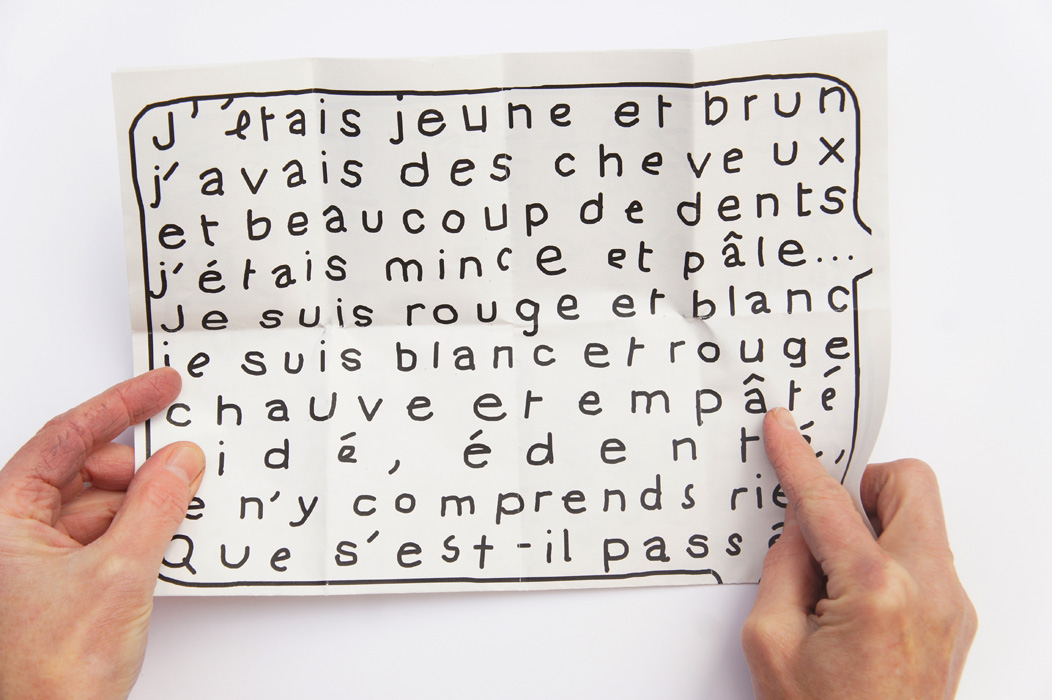 J'étais jeune et brun
j'avais des cheveux
et beaucoup de dents
j'étais mince et pâle...
Je suis rouge et blanc
je suis blanc et rouge
chauve et empâté
édenté,
n'y comprends
Que s'est-il